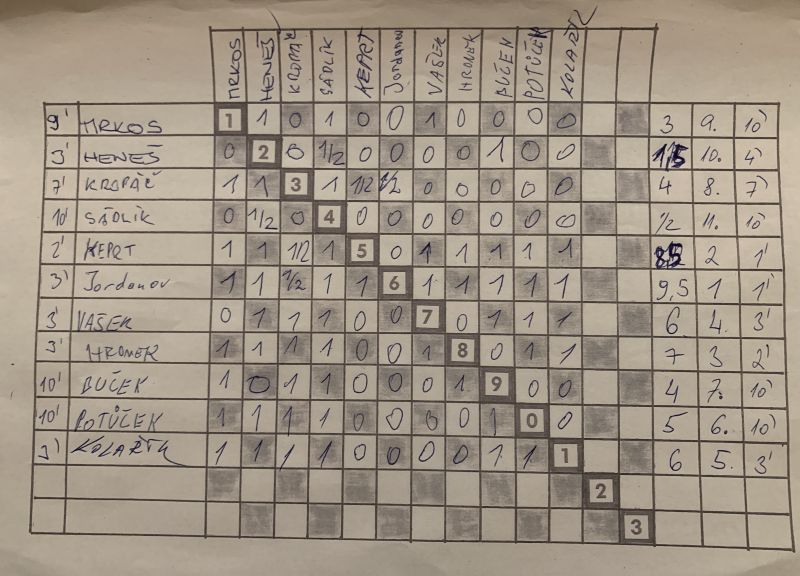 MRKOS HENEŠ KROPÁČ SÁDLÍK KEPRT Jordanov VAŠEK HRONEK BUČEK POTŮČEK KOLAŘÍK
9' MRKOS 1 1 0 1 0 0 1 0 0 0 0 3 9. 10'
3' HENEŠ 0 2 0 1/2 0 0 0 0 1 0 0 1,5 10. 4'
7' KROPÁČ 1 1 3 1 1/2 1/2 0 0 0 0 0 4 8. 7'
10' SÁDLÍK 0 1/2 0 4 0 0 0 0 0 0 0 1/2 11. 10'
2' KEPRT 1 1 1/2 1 5 0 1 1 1 1 1 8,5 2 1'
3' Jordanov 1 1 1/2 1 1 6 1 1 1 1 1 9,5 1 1'
3' VAŠEK 0 1 1 1 0 0 7 0 1 1 1 6 4. 3'
3' HRONEK 1 1 1 1 0 0 1 8 0 1 1 7 3 2'
10' BUČEK 1 0 1 1 0 0 0 1 9 0 0 4 7. 10'
10' POTŮČEK 1 1 1 1 0 0 0 0 1 0 0 5 6. 10'
3' KOLAŘÍK 1 1 1 1 0 0 0 0 1 1 1 6 5. 3'
2
3